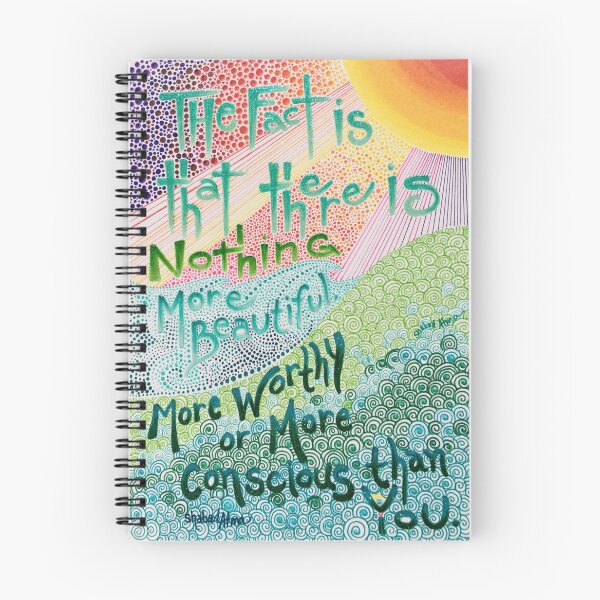 THe Fact is
that there is
NothinG
More
Beautiful,
More Worthy
or More
conscious than
You.